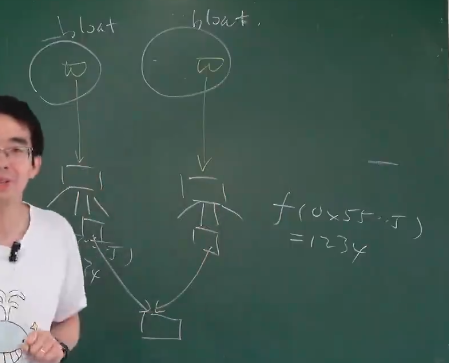 bloat
bloat.
W
W
f(0x55..5)
=1234